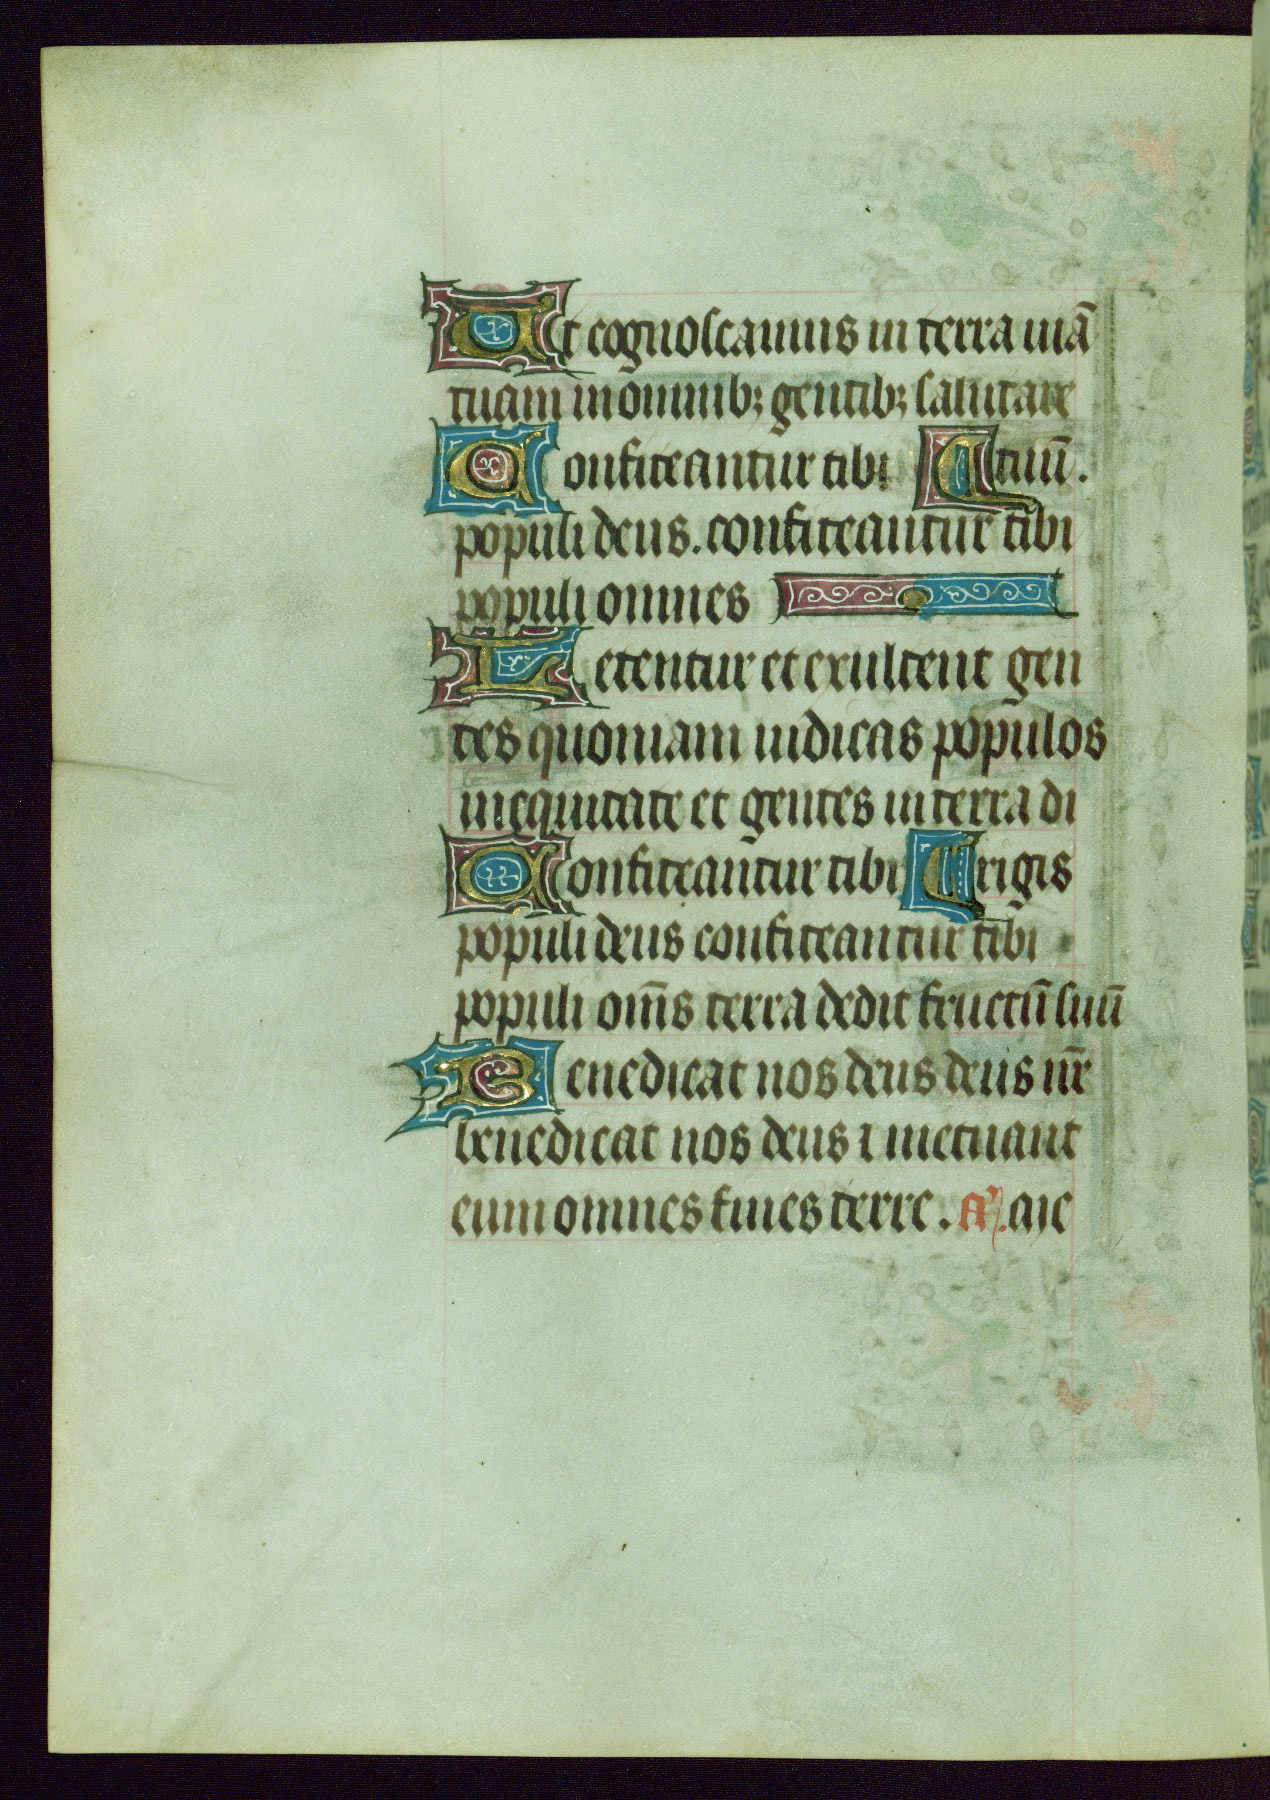 Ut cognoscamus in terra uiā
tuam in omnib; gentib; salutare
Confiteantur tibi ¶ tuū.
populi deus. confiteantur tibi
populi omnes
Letentur et exultent gen
tes quoniam iudicas populos
in equitate et gentes in terra di
Confiteantur tibi ¶ rigis
populi deus confiteantur tibi
populi om̄s terra dedit fructū suū
Benedicat nos deus deus nr̄
benedicat nos deus ⁊ metuant
eum omnes fines terre. a᷒. aie